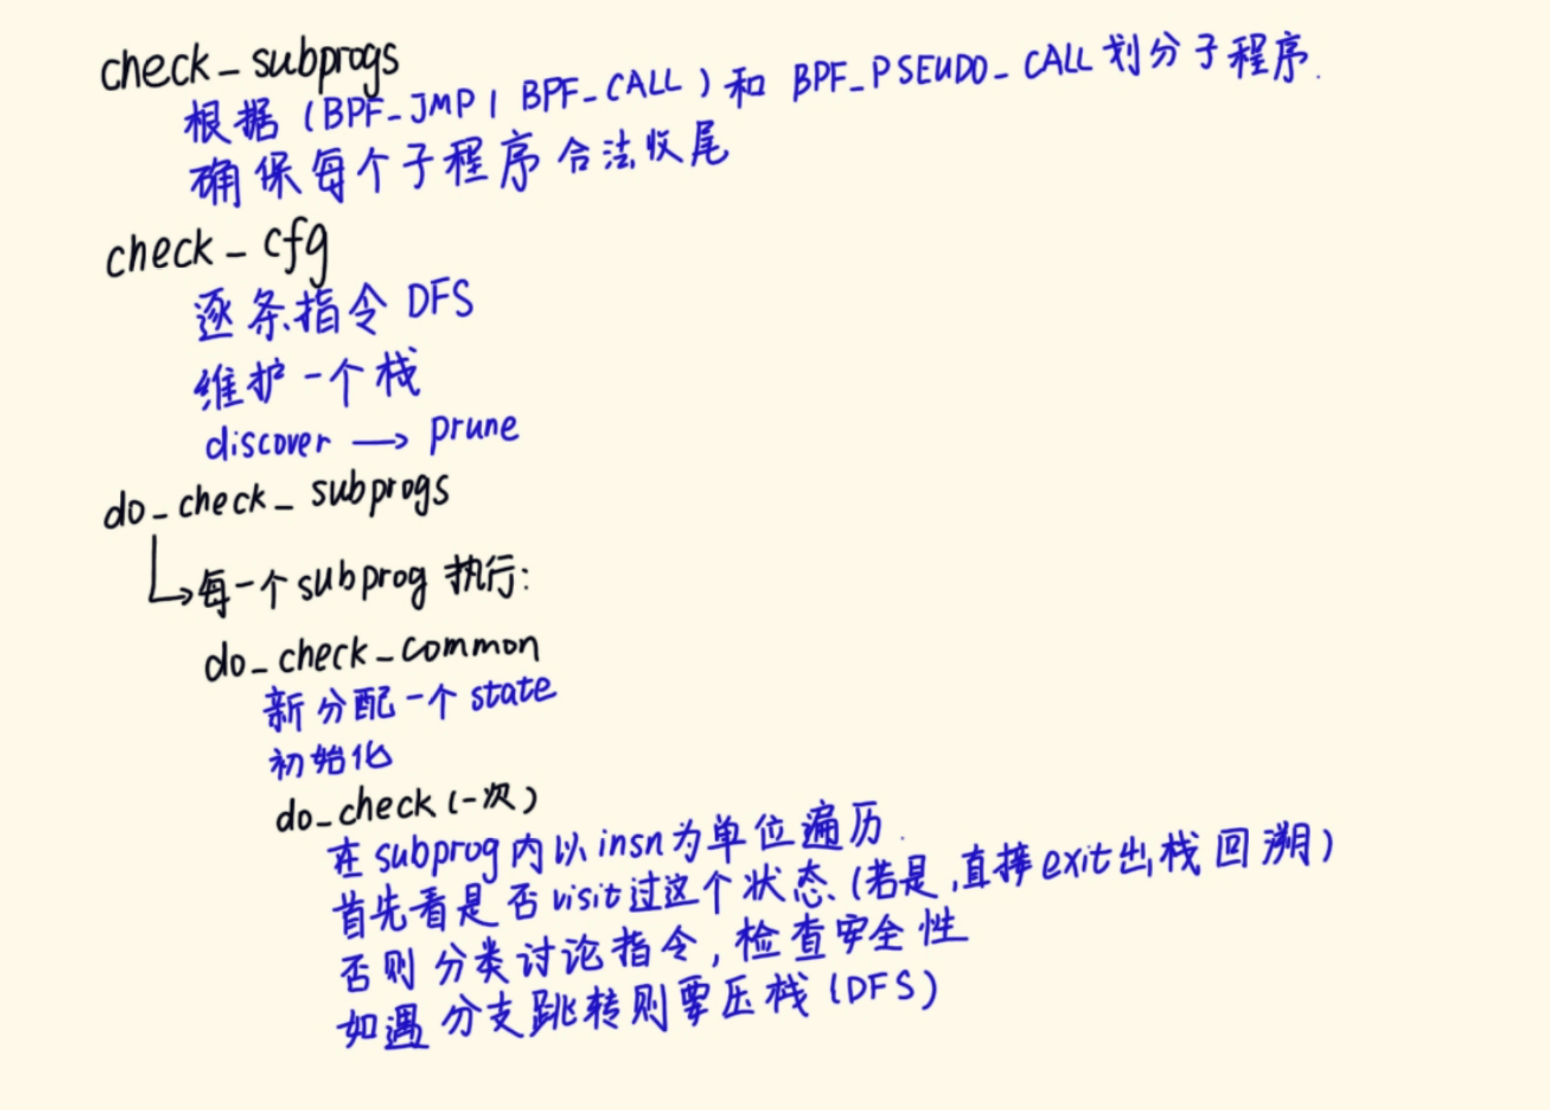 check_subprogs
根据 (BPF_JMP | BPF_CALL) 和 BPF_PSEUDO_CALL 划分子程序.
确保每个子程序合法收尾
check_cfg
逐条指令 DFS
维护一个栈
discover → prune
do_check_subprogs
↳每一个 subprog 执行:
do_check_common
新分配一个 state
初始化
do_check (一次)
在 subprog 内以 insn 为单位遍历.
首先看是否 visit 过这个状态. (若是,直接 exit 出栈回溯)
否则分类讨论指令, 检查安全性
如遇分支跳转则要压栈 (DFS)